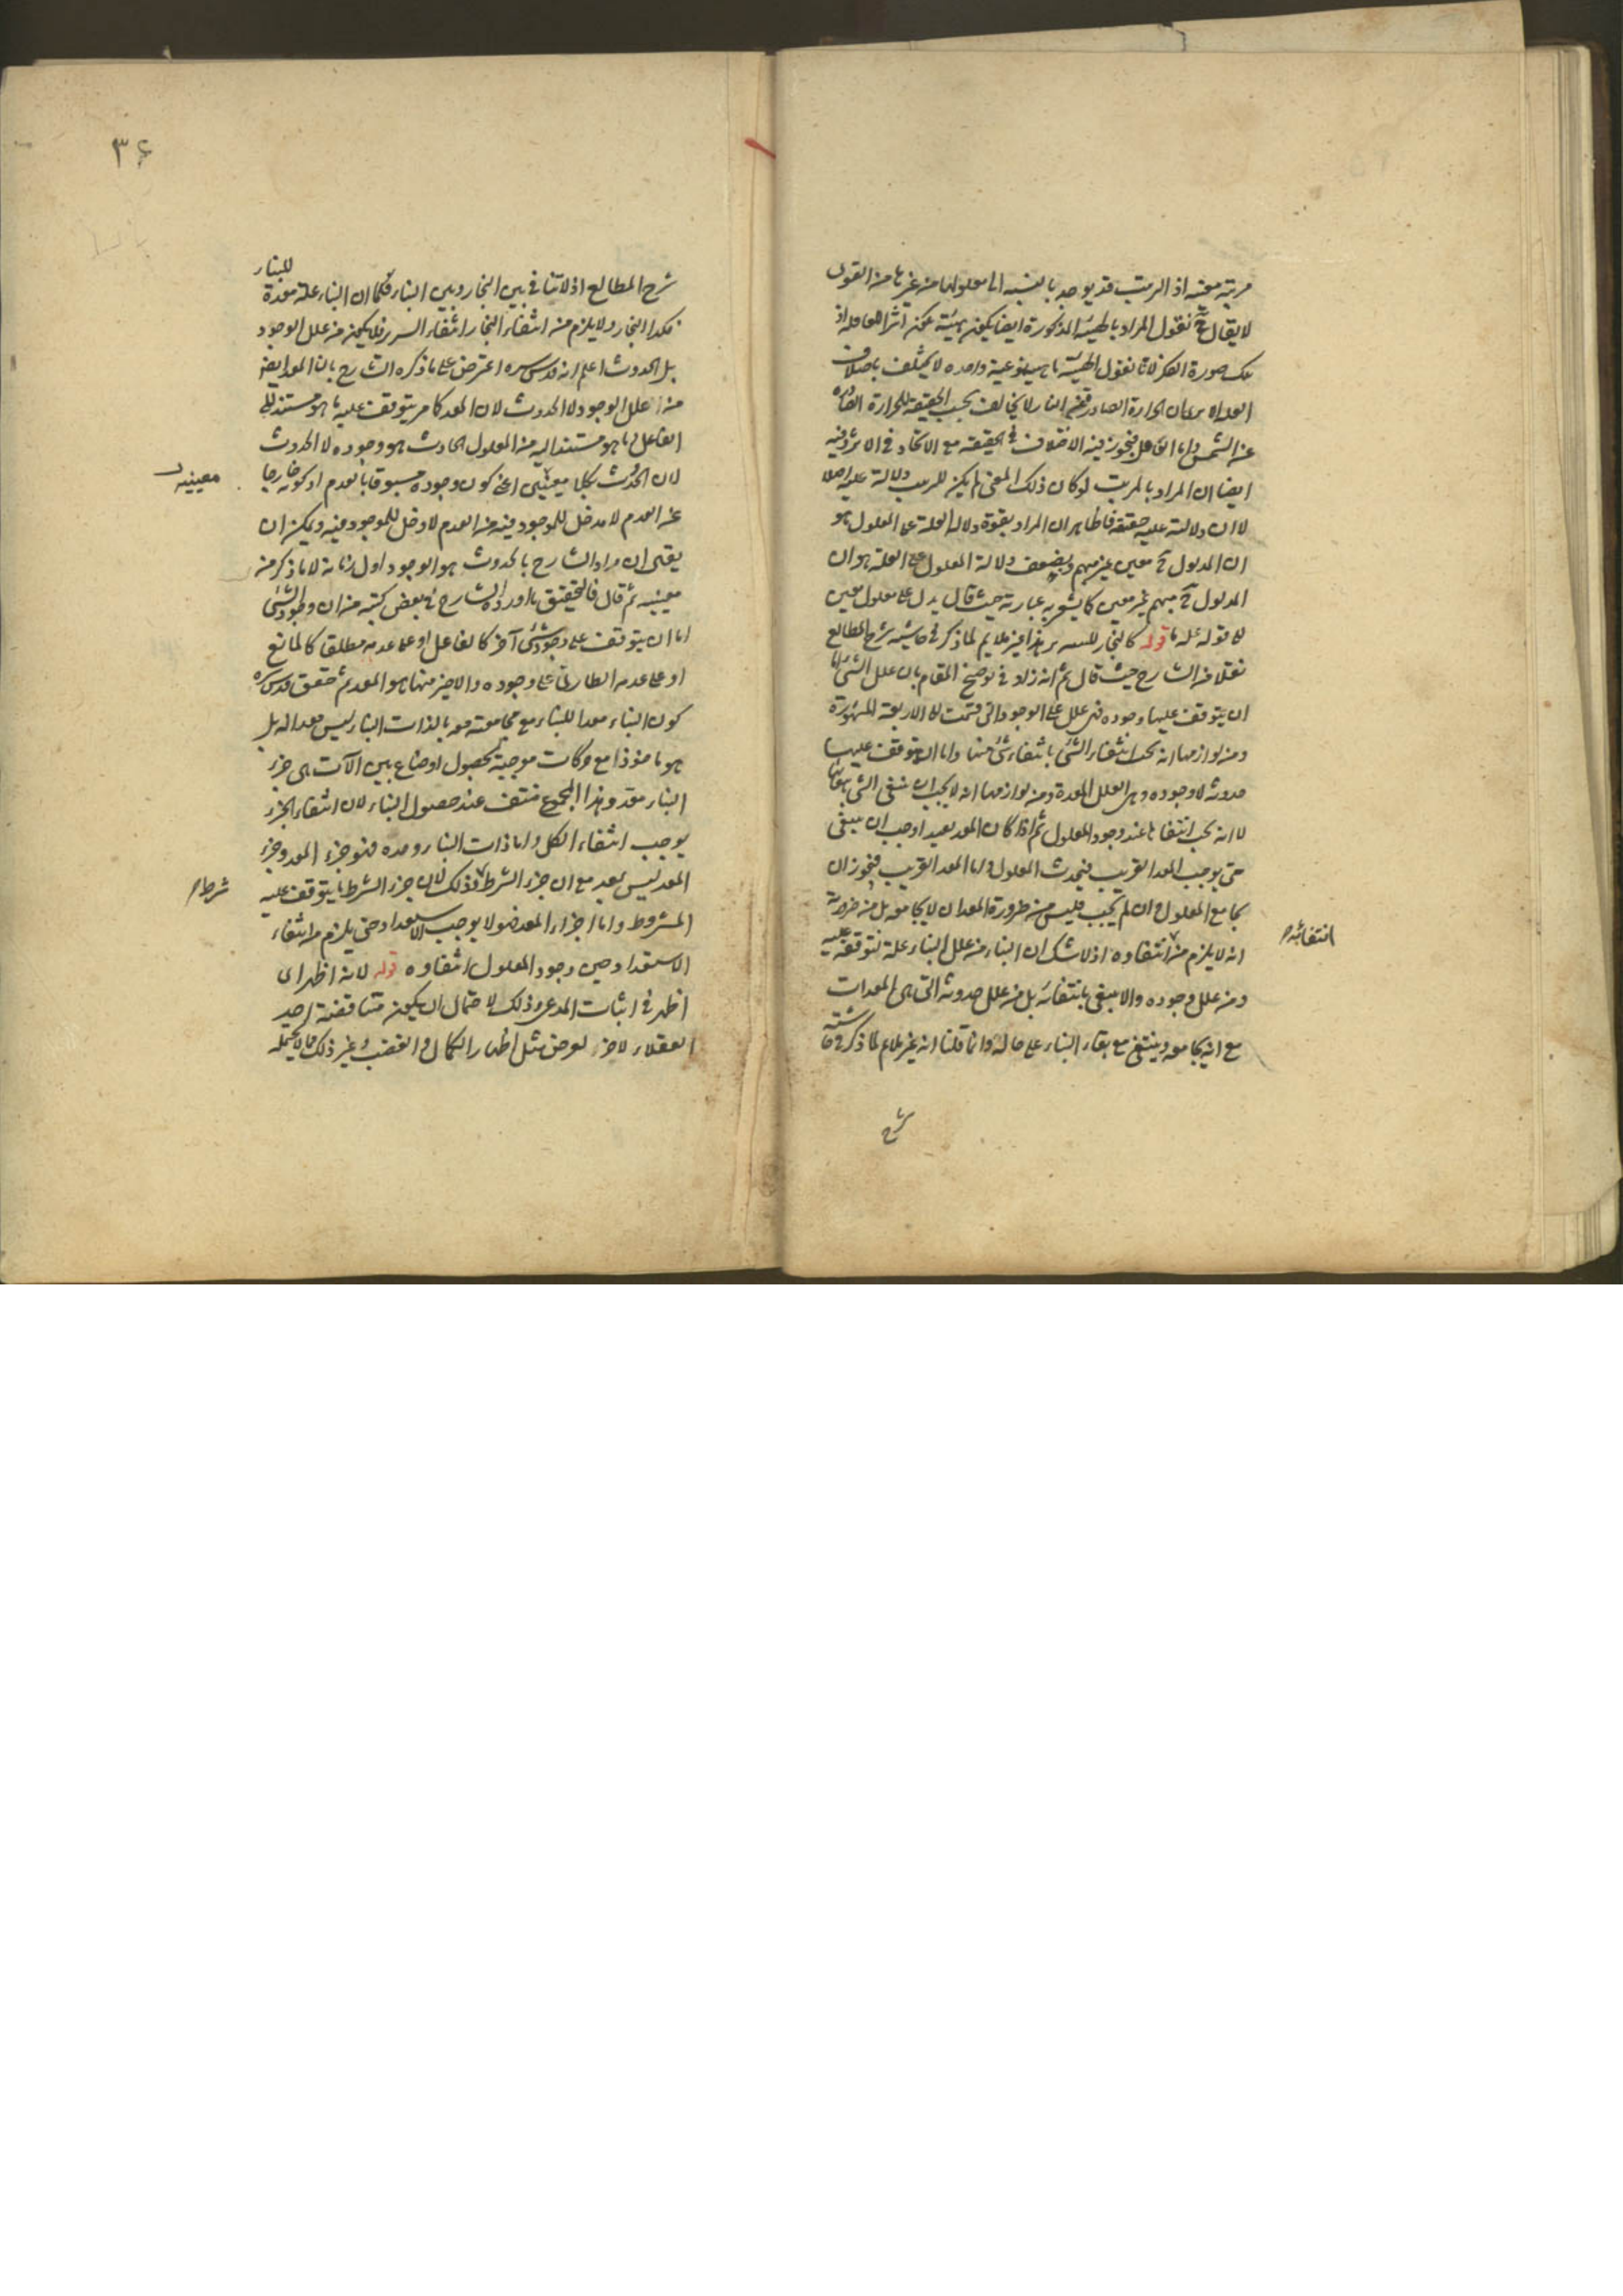 مرتبة معينة اذ الترتيب قد يوجد بالنسبة الى معلولها من غيرها من القول
لا يقال نقول المراد بالهيئة المذكورة ايضا يكون هيئة يمكن
تلك صورة الفكر لانا نقول الهيئة ماهية نوعية واحدة لا يختلف باختلاف
ان الحرارة الصادرة عن النار لا يخالف بحسب الحقيقة للحرارة الصادرة
عن الشمس واما الفاعل فيجوز فيه الاختلاف في الحقيقة مع الاتحاد في الاثر وفيه
ايضا ان المراد بالمرتب لو كان ذلك المعنى لم يكن للترتيب دلالة عليه اصلا
لا ان دلالته عليه حقيقة فالظاهر ان المراد بقوة دلالة العلة على المعلول هو
ان المدلول ح معين غير مبهم وبضعف دلالة المعلول على العلة هو ان
المدلول ح مبهم غير معين كما يشعر به عبارته حيث قال يدل على معلول معين
قوله كالنجار للسرير هذا غير ملايم لما ذكر في حاشية شرح المطالع
نقلا من الشارح حيث قال ثم انه زاد في توضيح المقام بان علل الشئ اما
ان يتوقف عليها وجوده فهي علل على الوجود التي قسمت الى الاربعة المشهورة
ومن لوازمها انه يجب انتفاء الشئ بانتفاء شئ منها واما ان يتوقف عليها
حدوثه لا وجوده وهي العلل المعدة ومن لوازمها انه لا يجب ان ينتفي الشئ بانتفائها
لا انه يجب انتفاءها عند وجود المعلول ثم اذا كان المعد بعيدا وجب ان ينتفي
حتى يوجب المعد القريب فيحدث المعلول واما المعد القريب فيجوز ان
يجامع المعلول وان لم يجب فليس من ضرورة المعد ان لا يجامعه بل من ضرورته
انه لا يلزم من انتفاوه اذ لا شك ان البناء من علل البناء علة لتوقفه عليه
انتفائه
ومن علل وجوده والا لبقي بانتفائه بل من علل حدوثه التي هي المعدات
مع انه يجامعه وينتفي مع بقاء البناء على حاله وانما قلنا انه غير ملايم لما ذكر في حاشيته
شرح
٣٦
شرح المطالع اذ لا تنافي بين النجار وبين البناء فكما ان البناء علة معدة للبناء
فكذا النجار ولا يلزم من انتفاء النجار انتفاء السرير فلا يكون من علل الوجود
بل الحدوث اعلم انه قدس سره اعترض على ما ذكره الشارح بان المعد ايضا
من علل الوجود لا الحدوث لان المعد كما مر يتوقف عليه ما هو مستند الى
الفاعل وما هو مستند اليه من المعلول الحادث هو وجوده لا الحدوث
لان الحدوث بكلا معنييه اعني كون وجوده مسبوقا بالعدم او كونه خارجا
معنييه
عن العدم لا مدخل للموجود فيه من العدم لا دخل للموجود فيه ويمكن ان
يقال ان مراد الشارح بالحدوث هو الوجود اول زمانه لا ما ذكر من
معنييه ثم قال فالتحقيق ما اورده الشارح في بعض كتبه من ان وجود الشئ
اما ان يتوقف على وجود شئ آخر كالفاعل او على عدمه مطلقا كالمانع
او على عدمه الطاري على وجوده والاخير منها هو المعد ثم حقق قدس سره
كون البناء معدا للبناء مع مجامعته معه بالذات البناء ليس معدا له بل
هو ماخوذا مع حركات موجبة لحصول اوضاع بين الآلات التي هي جزء
البناء معد وهذا المجموع منتف عند حصول البناء لان انتفاء الجزء
يوجب انتفاء الكل واما ذات البناء وحده فهو جزء المعد وجزء
المعد ليس بمعد مع ان جزء الشرط وذلك لان جزء الشرط ما يتوقف عليه
شرط
المشروط واما اجزاء المعد فهو لا يوجب الاستعداد حتى يلزم من انتفاء
الاستعداد حين وجود المعلول انتفاوه قوله لانه اظهر اى
اظهر في اثبات المدعى وذلك لاحتمال ان يكون مناقضة احد
العقلاء لآخر لغرض مثل اظهار الكمال والغضب وغير ذلك مما لا يحتمله